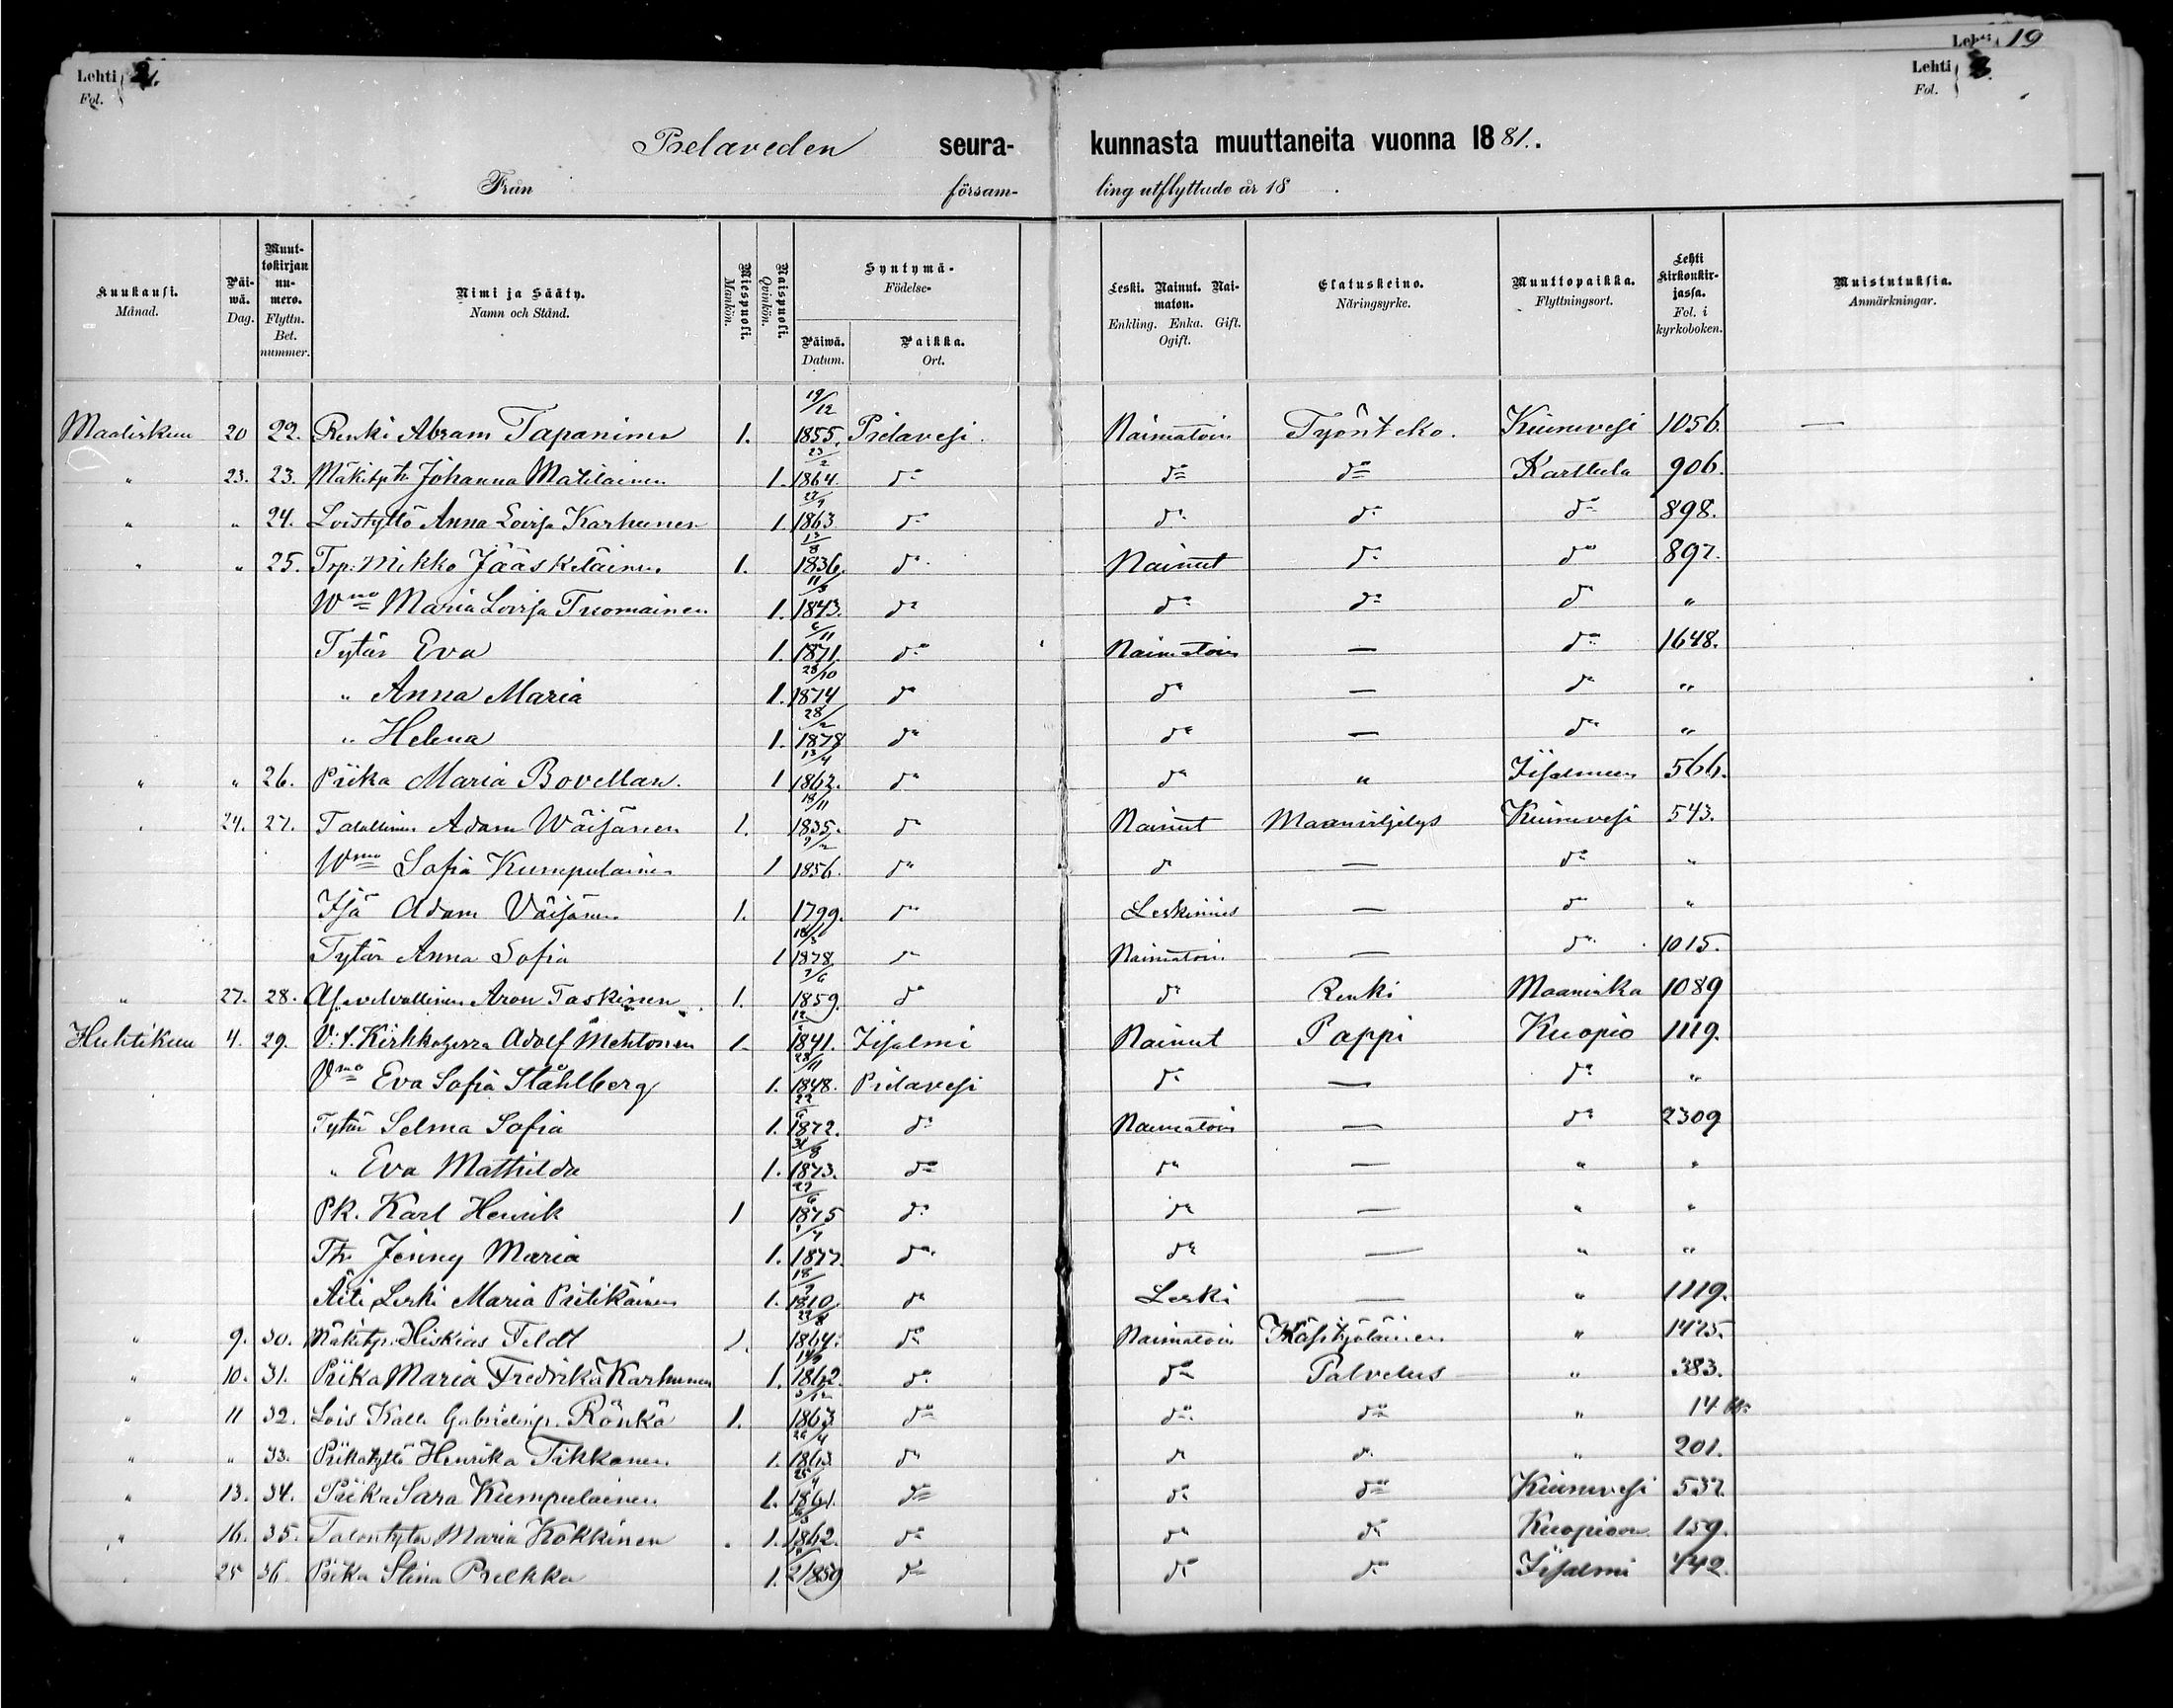 Lehti 19
Lehti 2. Lehti 3.
Fol. Fol.
Pielaveden seura- kunnasta muuttaneita vuonna 1881.
Från försam- ling utflyttade år 18 .
Kuukausi. Månad. Päiwä. Dag. Muuttokirjan numero. Flyttn. Bet. nummer. Nimi ja Sääty. Namn och Stånd. Miespuoli. Mankön. Naispuoli. Qvinkön. Syntymä- Födelse- Päiwä. Datum. Paikka. Ort. Leski. Nainut. Naimaton. Enkling. Enka. Gift. Ogift. Elatuskeino. Näringsyrke. Muuttopaikka. Flyttningsort. Lehti Kirkonkirjassa. Fol. i kyrkoboken. Muistutuksia. Anmärkningar.
Maaliskuu 20 22. Renki Abram Tapaninen 1. 19/12 1855. Pielavesi. Naimatoin Työnteko. Kiuruvesi 1056. —
" 23. 23. Mäkitp tr Johanna Matilainen 1. 23/2 1864. do do do Karttula 906.
" " 24. Loistyttö Anna Lovisa Karhunen 1. 27/9 1863 do do do do 898.
" " 25. Trp: Mikko Jääskeläinen 1. 13/8 1836. do Nainut do do 897.
Wmo Maria Lovisa Tuomainen 1. 11/3 1843. do do do do "
Tytär Eva 1. 6/11 1871. do Naimatoin — do 1648.
" Anna Maria 1. 28/10 1874 do do — do "
" Helena 1. 28/2 1878 do do — do "
" " 26. Piika Maria Bovellan. 1 13/4 1862. do do " Iisalmeen 566.
" 24. 27. Talallinen Adam Wäisänen 1. 18/11 1835. do Nainut Maanviljelys Kiuruvesi 543.
Wmo Sofia Kumpulainen 1 7/2 1856. do do — do "
Isä Adam Väisänen 1. 1799. do Leskimies — do "
Tytär Anna Sofia 1 18/3 1878. do Naimatoin — do 1015.
" 27. 28. Asevelvollinen Aron Taskinen 1. 7/6 1859. do do Renki Maaninka 1089
Huhtikuu 4. 29. V. t. Kirkkoherra Adolf Mehtonen 1. 1841. Iisalmi Nainut Pappi Kuopio 1119.
Vmo Eva Sofia Ståhlberg 1. 28/11 1848. Pielavesi do — do "
Tytär Selma Sofia 1. 1872. do Naimatoin — do 2309
" Eva Mathilda 1. 31/8 1873. do do — " "
Pk. Karl Henrik 1 29/6 1875 do do — " "
Tr. Jenny Maria 1. 1877. do do — " "
Äiti Leski Maria Pitikäinen 1. 1810. do Leski — " 1119.
" 9. 30. Mäkitp. Hiskias Feldt 1. 29/8 1864. do Naimatoin Käsityöläinen " 1425.
" 10. 31. Piika Maria Fredrika Karhunen 1. 1862. do do Palvelus " 383.
" 11 32. Lois Kalle Gabrielinp. Rönkä 1. 3/12 1863 do do do " 14
" " 33. Piikatyttö Henrika Tikkanen 1. 26/4 1863 do do do " 201.
" 13. 34. Piika Sara Kumpulainen 1. 1861. do do do Kiuruvesi 537.
" 16. 35. Talontytär Maria Kokkinen 1. 1862. do do do Kuopioon 159.
" 25 36. Piika Stina Pielkka 1. 1859 do do do Iisalmi 442.